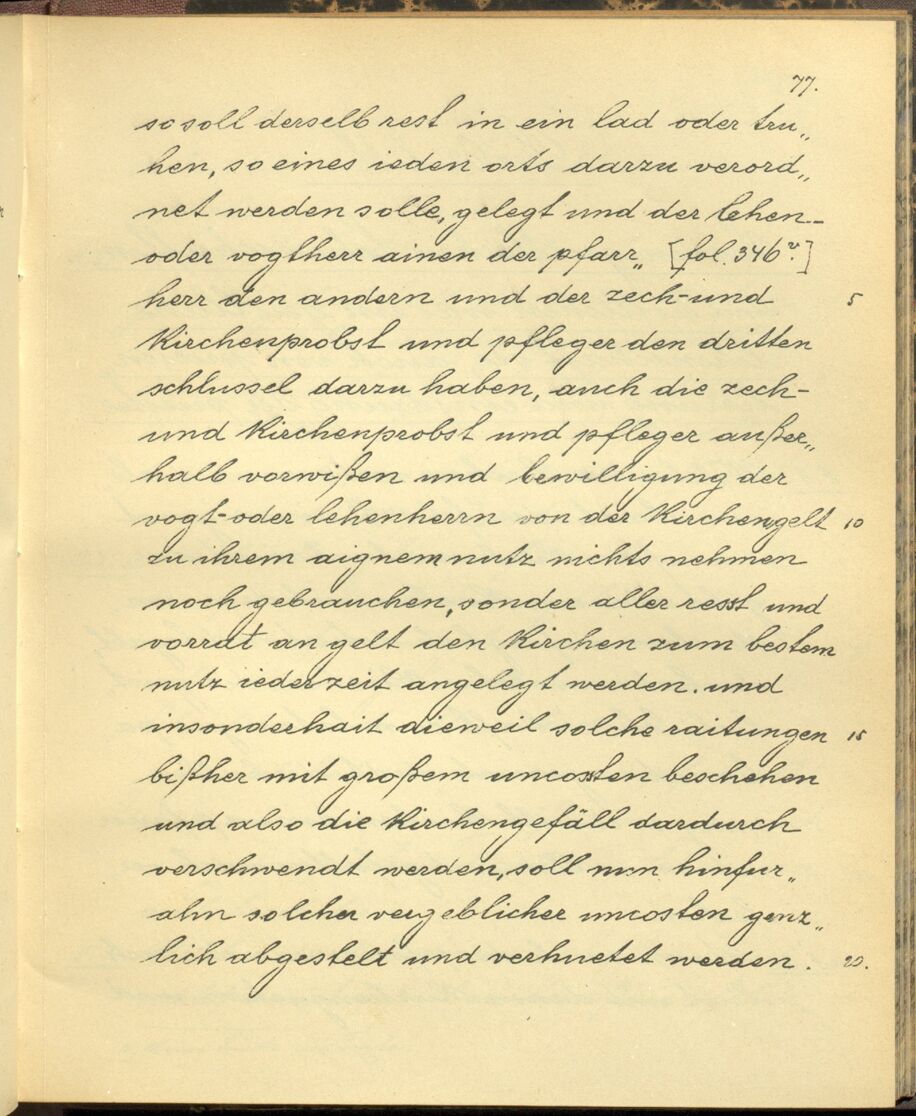 77.
so soll derselb rest in ein lad oder tru„
hen, so eines ieden orts darzu verord„
net werden solle, gelegt und der lehen-
oder vogtherr ainen der pfarr„ [fol. 346v.]
herr den andern und der zech-und 5
Kirchenprobst und pfleger den dritten
schlussel darzu haben, auch die zech-
und Kirchenprobst und pfleger außer„
halb vorwißen und bewilligung der
vogt-oder lehenherrn von der Kirchengelt 10
zu ihrem aignem nutz nichts nehmen
noch gebrauchen, sonder aller resst und
vorrat an gelt den Kirchen zum bestem
nutz iederzeit angelegt werden. und
insonderhait dieweil solche raitungen 15
bißher mit großem uncosten beschehen
und also die Kirchengefäll dardurch
verschwendt werden, soll nun hinfur„
ahn solcher vergeblicher uncosten genz„
lich abgestelt und verhuetet werden. 20.